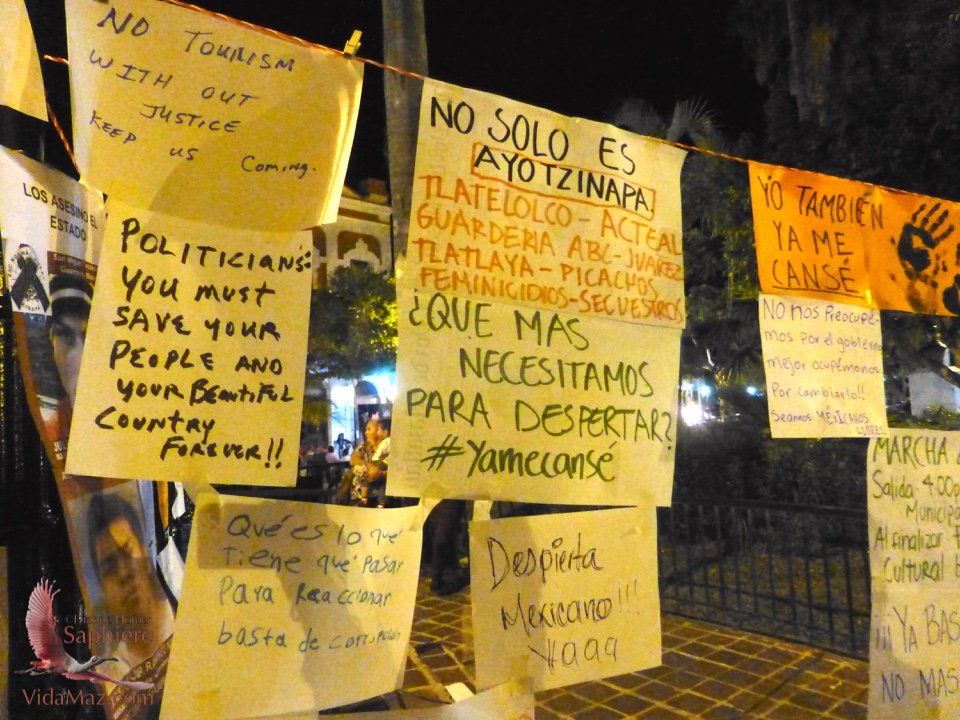 NO TOURISM
WITH OUT
JUSTICE
KEEP US COMING.
LOS ASESINO EL
ESTADO
POLITICIANS:
YOU MUST
SAVE YOUR
PEOPLE AND
YOUR BEAUTIFUL
COUNTRY
FOREVER!!
NO SOLO ES
AYOTZINAPA
TLATELOLCO - ACTEAL
GUARDERIA ABC - JUAREZ
TLATLAYA - PICACHOS
FEMINICIDIOS - SECUESTROS
¿QUE MAS
NECESITAMOS
PARA DESPERTAR?
#Yamecansé
YO TAMBIÉN
YA ME
CANSÉ
No nos Preocupé-
mos por el gobierno
mejor ocupémonos
Por cambiarlo!!
Seamos MÉXICANOS
LIBRES
Qué es lo que
Tiene que Pasar
Para Reaccionar
basta de corrupcion
Despierta
Mexicano!!!
Yaaa
MARCHA
Salida 4:00p
Municipa
Al finalizar
Cultural
¡¡¡YA BAS
NO MAS
Saphiere
VidaMaz.com